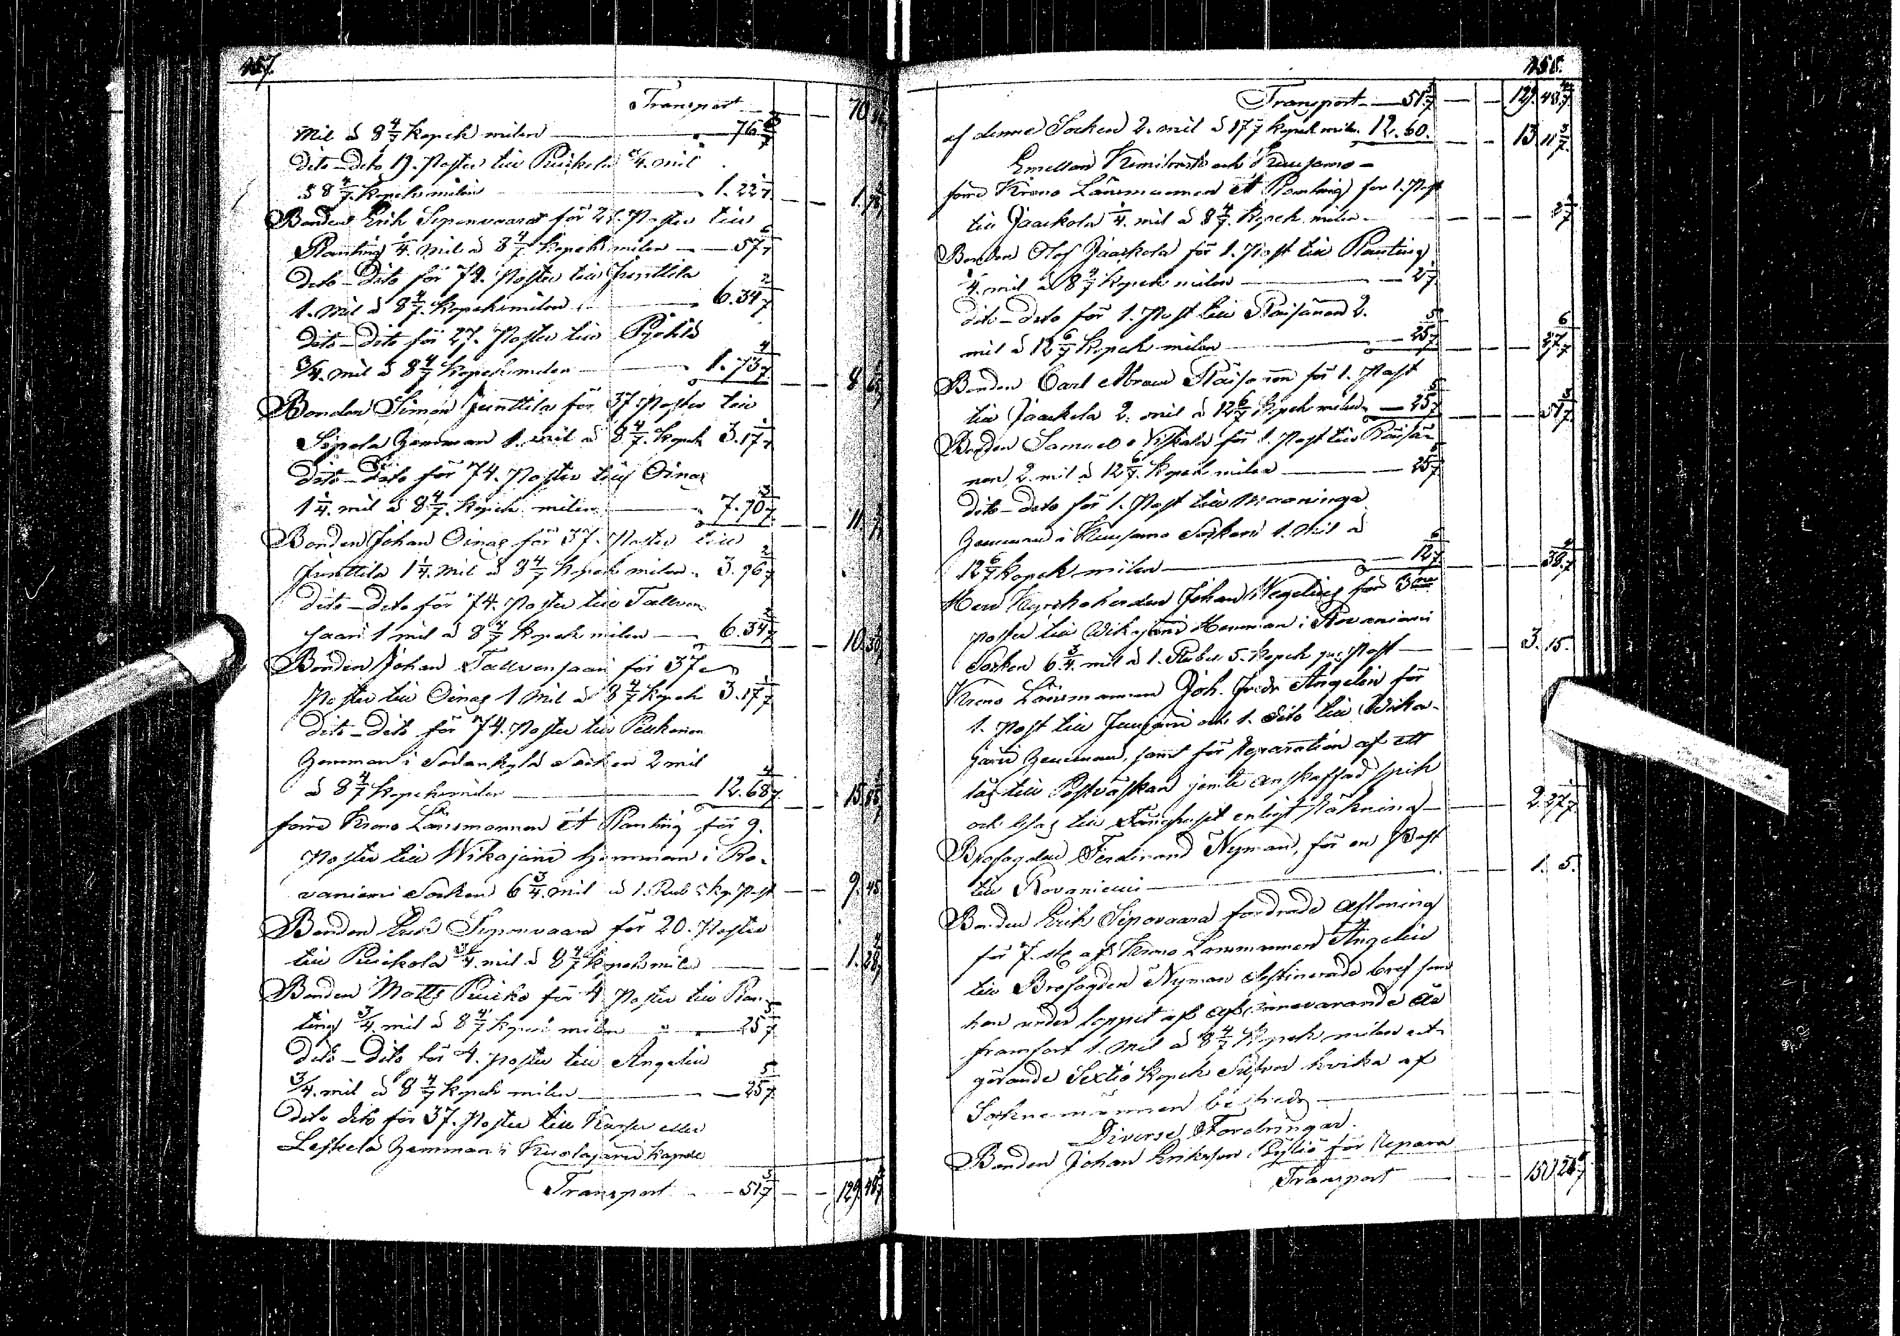 457.
Transport — — 70
mil à 8 4/7 kopek milen — 76 6/7
dito–dito 19. Poster till Puickola 3/4. mil
à 8 4/7 kopek milen — 1. 22 — — 1. 98
Bonden Erik Siponvaara för 27. Poster till
Planting 1/4. mil à 8 4/7 kopek milen — 57 6/7
dito–dito för 74. Poster till Junttila
1. mil à 8 4/7 kopek milen — 6. 34 2/7
dito–dito för 27. Poster till
3/4. mil à 8 4/7 kopek milen — 1. 73 4/7 — — 8
Bonden Simon Junttila för 37 Poster till
Sipola hemman 1. mil à 8 4/7 kopek 3. 17 1/7
dito–dito för 74. Poster till Oinas
1 1/4. mil à 8 4/7 kopek milen — 7. 70 3/7 — — 11.
Bonden Johan Oinas för 37. Poster till
Junttila 1 1/4. mil à 8 4/7 kopek milen. 3. 96 2/7
dito–dito för 74. Poster till Tallvan
saari 1 mil à 8 4/7 kopek milen — 6. 34 2/7 — — 10. 30
Bonden Johan Tallvensaari för 37
Poster till Oinas 1 mil à 8 4/7 kopek 3. 17 1/7
dito–dito för 74. Poster till Pelkonen
hemman i Sodankylä Socken 2 mil
à 8 4/7 kopek milen — 12. 68 4/7 — — 15. 85
förre Krono Länsmannen Planting för 9.
Poster till Wikajärvi hemman i Ro-
vaniemi Socken 6 3/4. mil à 1. Rub 5 kop Post — — 9. 45
Bonden Erik Siponvaara för 20. Poster
till Puickola 3/4. mil à 8 4/7 kopek milen — — 1. 28 4/7
Bonden Matts Puicko för 4 Poster till Plan-
ting 3/4. mil à 8 4/7 kopek milen — 25 5/7
dito–dito för 4. Poster till Angelin
3/4. mil à 8 4/7 kopek milen — 25 5/7
dito dito för 37. Poster till eller
hemman i Kuolajärvi Kapell
Transport — 51 3/7 — — 129. 48
458.
Transport — 51 3/7 — — 129. 48 4/7
af denne Socken 2. mil à 17 1/7 kopek mil. 12. 60. — — 13. 11 3/7
Emellan och Kuusamo –
förre Krono Länsmannen Planting för 1. Post
till Jaackola 1/4. mil à 8 4/7 kopek milen — — 2 1/7
Bonden Olof Jaackola för 1. Post till Planting
1/4. mil à 8 4/7 kopek milen — 2 1/7
dito–dito för 1. Post till Räisänen 2.
mil à 12 6/7 kopek milen — 25 5/7 — — 27 6/7
Bonden Carl Abram Räisänen för 1. Post
till Jaackola 2. mil à 12 6/7 kopek milen — 25 5/7 — — 51 3/7
Bonden Samuel för 1. Post till Räisä-
nen 2. mil à 12 6/7 kopek milen — 25 5/7
dito–dito för 1. Post till Maaninga
hemman i Kuusamo Socken 1. mil à
12 6/7 kopek milen — 12 6/7 — — 38 4/7
Herr Kyrkoherden Johan Wegelius för 3ne
poster till Wikajärvi Hemman i Rovaniemi
Socken 6 3/4. mil à 1. Rubel 5. kopek pr Post — — 3. 15.
Krono Länsmannen Joh. Fredr Angelin för
1. Post till och 1. dito till Wika-
järvi hemman, samt för Reparation af ett
lås till Postväskan jemte anskaffad spik
och till Fånghuset enligt Räkning — — 2. 27 1/7
Brofogden Ferdinand Nyman, för en Post
till Rovaniemi — — 1. 5.
Bonden Erik Sipovaara fordrade aflöning
för 7. st af Krono Länsmannen Angelin
till Brofogden Nyman destinerade bref som
han under loppet af innevarande år
framfört 1. mil à 8 4/7 kopek milen ut-
görande Sextio kopek Silfver hvilka af
Sockne männen bestreds —
Diverse Fordringar.
Bonden Johan Eriksson för Repara
Transport — — 150. 24